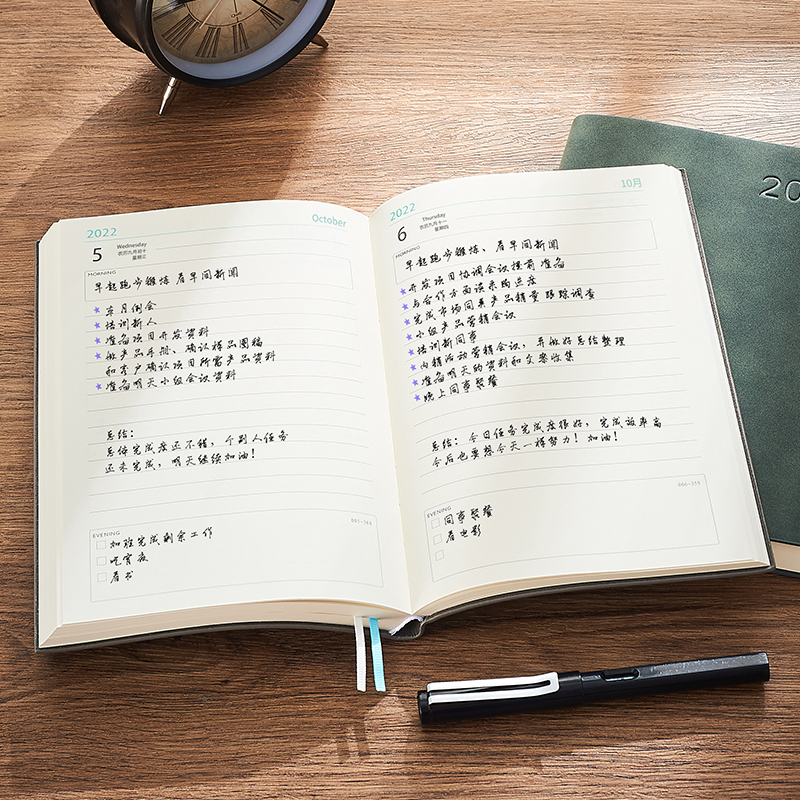 2022
October
5
Wednesday
农历九月初十
星期三
MORNING
早起跑步锻炼 看早间新闻
★ 本月例会
★ 培训新人
★ 准备项目开发资料
★ 做产品手册、确认样品图稿
和客户确认项目所需产品资料
★ 准备明天小组会议资料
总结:
总体完成度还不错,个别人任务
还未完成,明天继续加油!
005-360
EVENING
加班完成剩余工作
吃宵夜
看书
2022
10月
6
Thursday
农历九月十一
星期四
MORNING
早起跑步锻炼、看早间新闻
★ 开发项目协调会议提前准备
★ 与合作方面谈采购进度
★ 完成市场同类产品销量跟踪调查
★ 小组产品营销会议
★ 培训新同事
★ 内销活动营销会议,并做好总结整理
★ 准备明天的资料和文案收集
★ 晚上同事聚餐
总结:今日任务完成度很好,完成效率高
今后也要想今天一样努力!加油!
006-359
EVENING
同事聚餐
看电影
20